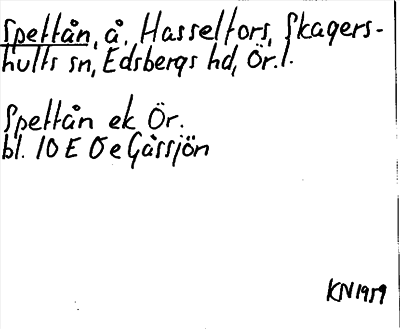 Spettån, å, Hasselfors, Skagers-
hults sn, Edsbergs hd, Ör.l.
Spettån ek Ör.
bl. 10 E 0 e Gåssjön
KN 1959